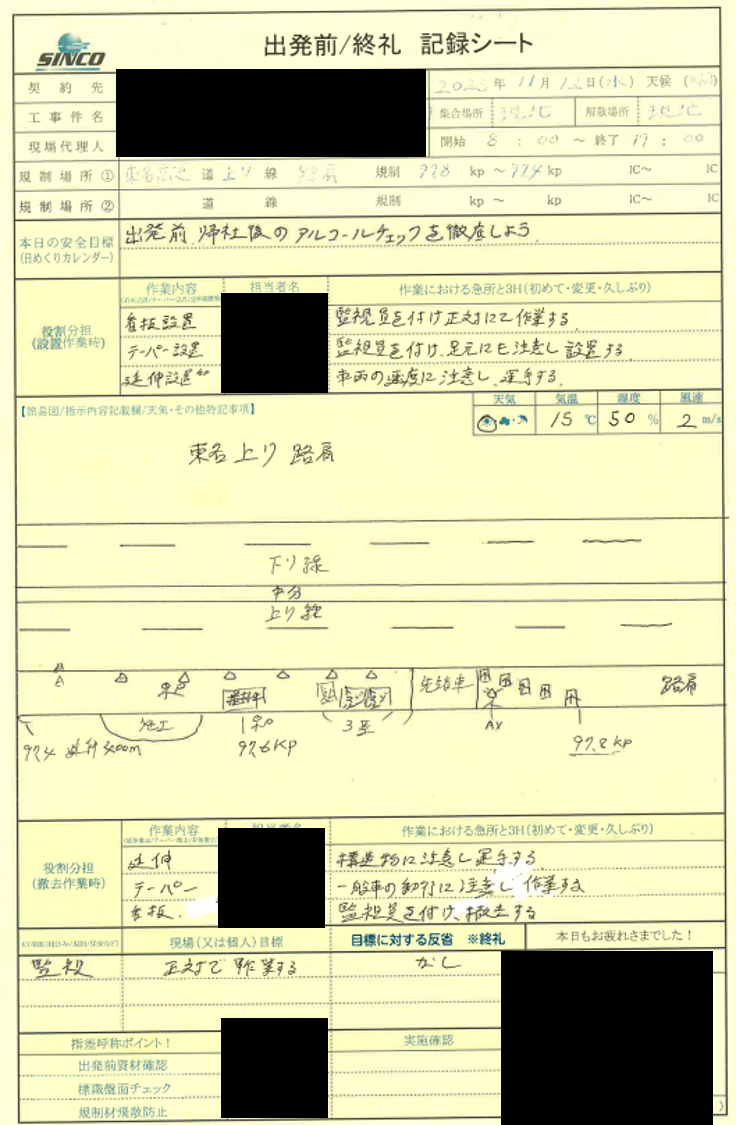 SINCO
出発前/終礼 記録シート
契約先
2025年 11月 12日(水) 天候 (
工事件名
集合場所 現地 解散場所 現地
現場代理人
開始 8:00 ~ 終了 17:00
規制場所① 東名高速 道 上り 線 路肩 規制 97.8 kp ~ 97.4 kp IC~ IC
規制場所② 道 線 規制 kp ~ kp IC~ IC
本日の安全目標 (日めくりカレンダー)
出発前、帰社後のアルコールチェックを徹底しよう
役割分担 (設置作業時)
作業内容 担当者名 作業における急所と3H(初めて・変更・久しぶり)
看板設置 監視員を付け正対にて作業する
テーパー設置 監視員を付け、足元にも注意し設置する
延伸設置 車両の速度に注意し、運手する
【簡易図/指示内容記載欄/天気・その他特記事項】
天気 気温 湿度 風速
15℃ 50% 2 m/s
東名 上り 路肩
下り線
中分
上り線
先結車 路肩
施工 3 AX
97.4 延伸400m 97.6KP 97.8KP
役割分担 (撤去作業時)
作業内容 担当者名 作業における急所と3H(初めて・変更・久しぶり)
延伸 構造物に注意し運手する
テーパー 一般車の動行に注意し作業する
看板 監視員を付け、撤去する
現場(又は個人)目標 目標に対する反省 ※終礼 本日もお疲れさまでした!
監視 正対で作業する
指差呼称ポイント! 実施確認
出発前資材確認
標識盤面チェック
規制材飛散防止